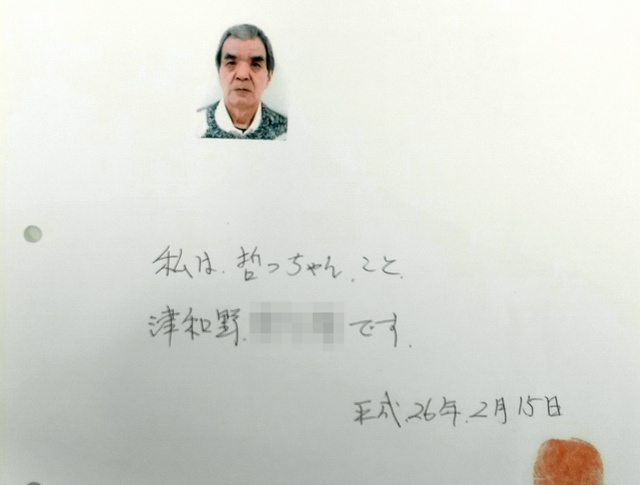 私は、哲っちゃん、こと、
津和野、です。
平成、26年、2月15日